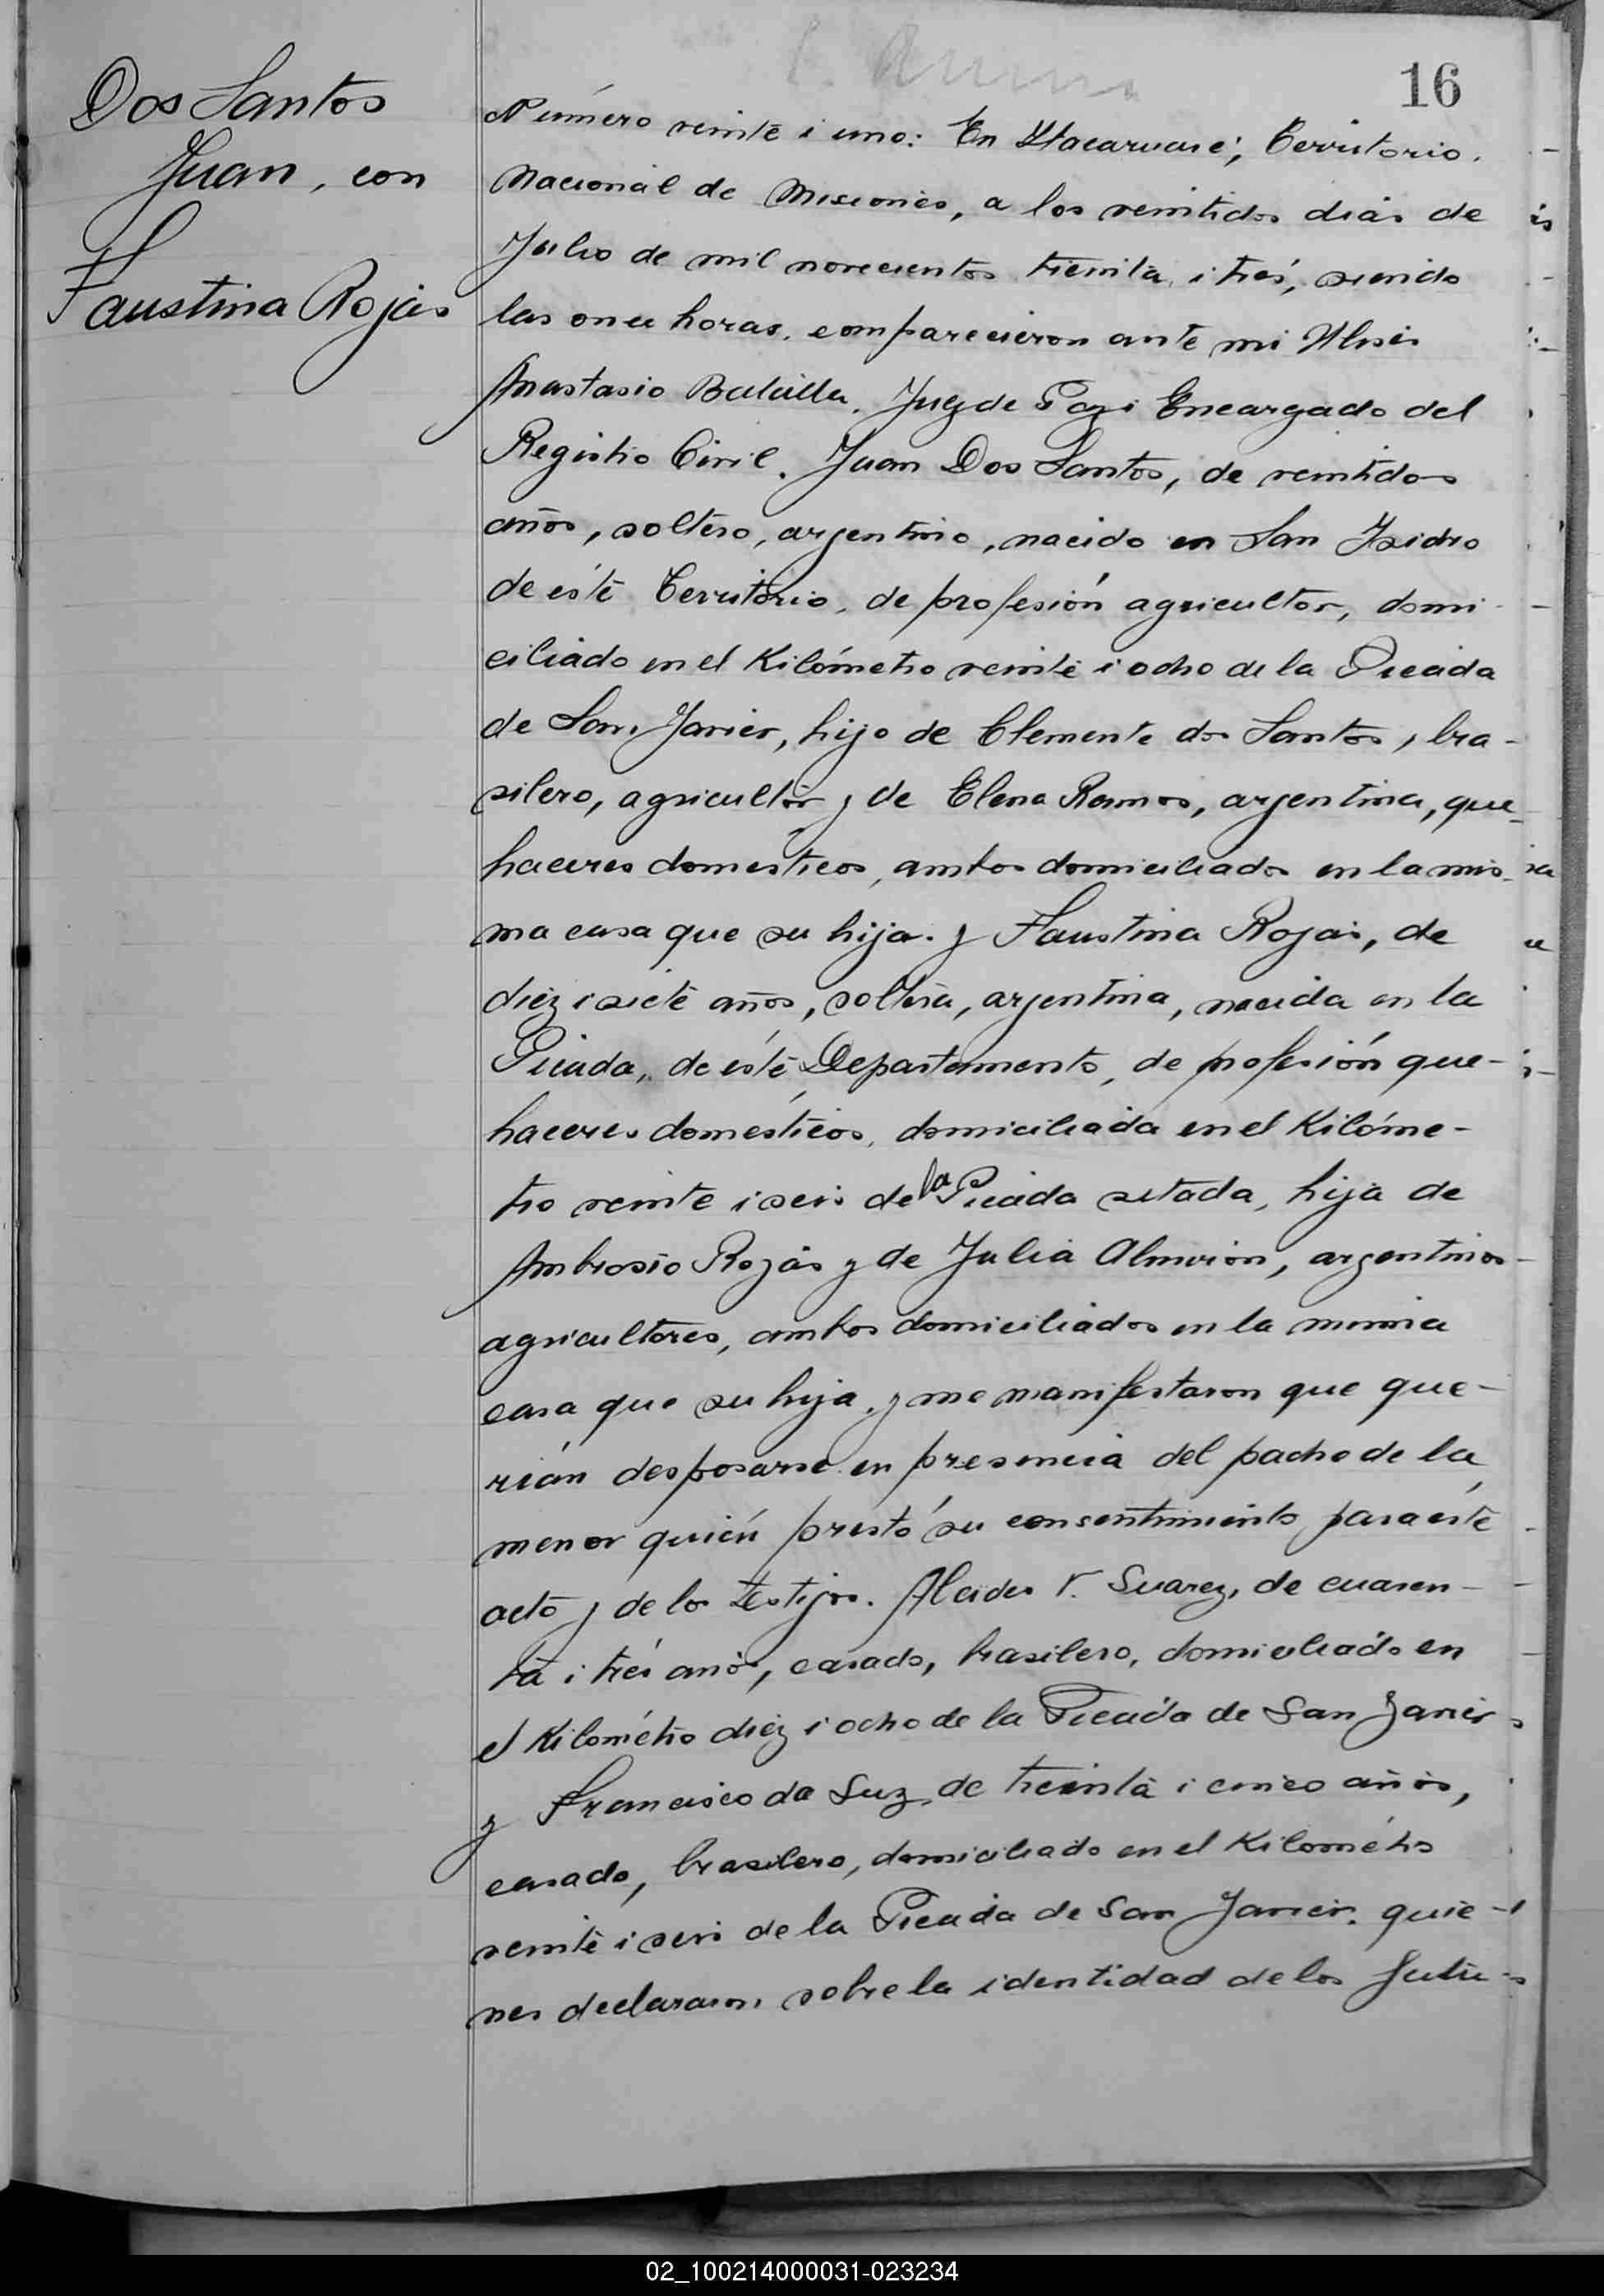 16
Dos Santos
Juan, con
Faustina Rojas
Número veinte i uno: En Itacaruaré, Territorio
Nacional de Misiones, a los veintidos diás de
Julio de mil novecientos treinta i trés, siendo
las once horas, comparecieron ante mi Ulises
Anastasio Balbilla, Juez de Paz i Encargado del
Registro Civil, Juan Dos Santos, de veintidos
años, soltero, argentino, nacido en San Isidro
de éste Territorio, de profesión agricultor, domi-
ciliado en el Kilómetro veinte i ocho de la Picada
de San Javier, hijo de Clemente dos Santos, bra-
silero, agricultor y de Elena Ramos, argentina, que-
haceres domesticos, ambos domiciliados en la mis-
ma casa que su hijo. y Faustina Rojas, de
diez i siete años, soltera, argentina, nacida en la
Picada, de éste Departamento, de profesión que-
haceres domésticos, domiciliada en el Kilóme-
tro veinte i seis de la Picada sitada, hija de
Ambrosio Rojas y de Julia Almiron, argentinos
agricultores, ambos domiciliados en la misma
casa que su hija, y me manifestaron que que-
rián desposarse en presencia del padre de la
menor quién prestó su consentimiento para éste
acto y de los testigos. Alcides V. Suarez, de cuaren-
ta i trés años, casado, brasilero, domiciliado en
el Kilométro diez i ocho de la Picada de San Javier
y Francisco da Luz, de treinta i cinco años,
casado, brasilero, domiciliado en el Kilométro
veinte i seis de la Picada de San Javier, quie-
nes declararon sobre la identidad de los futu-
02_100214000031-023234